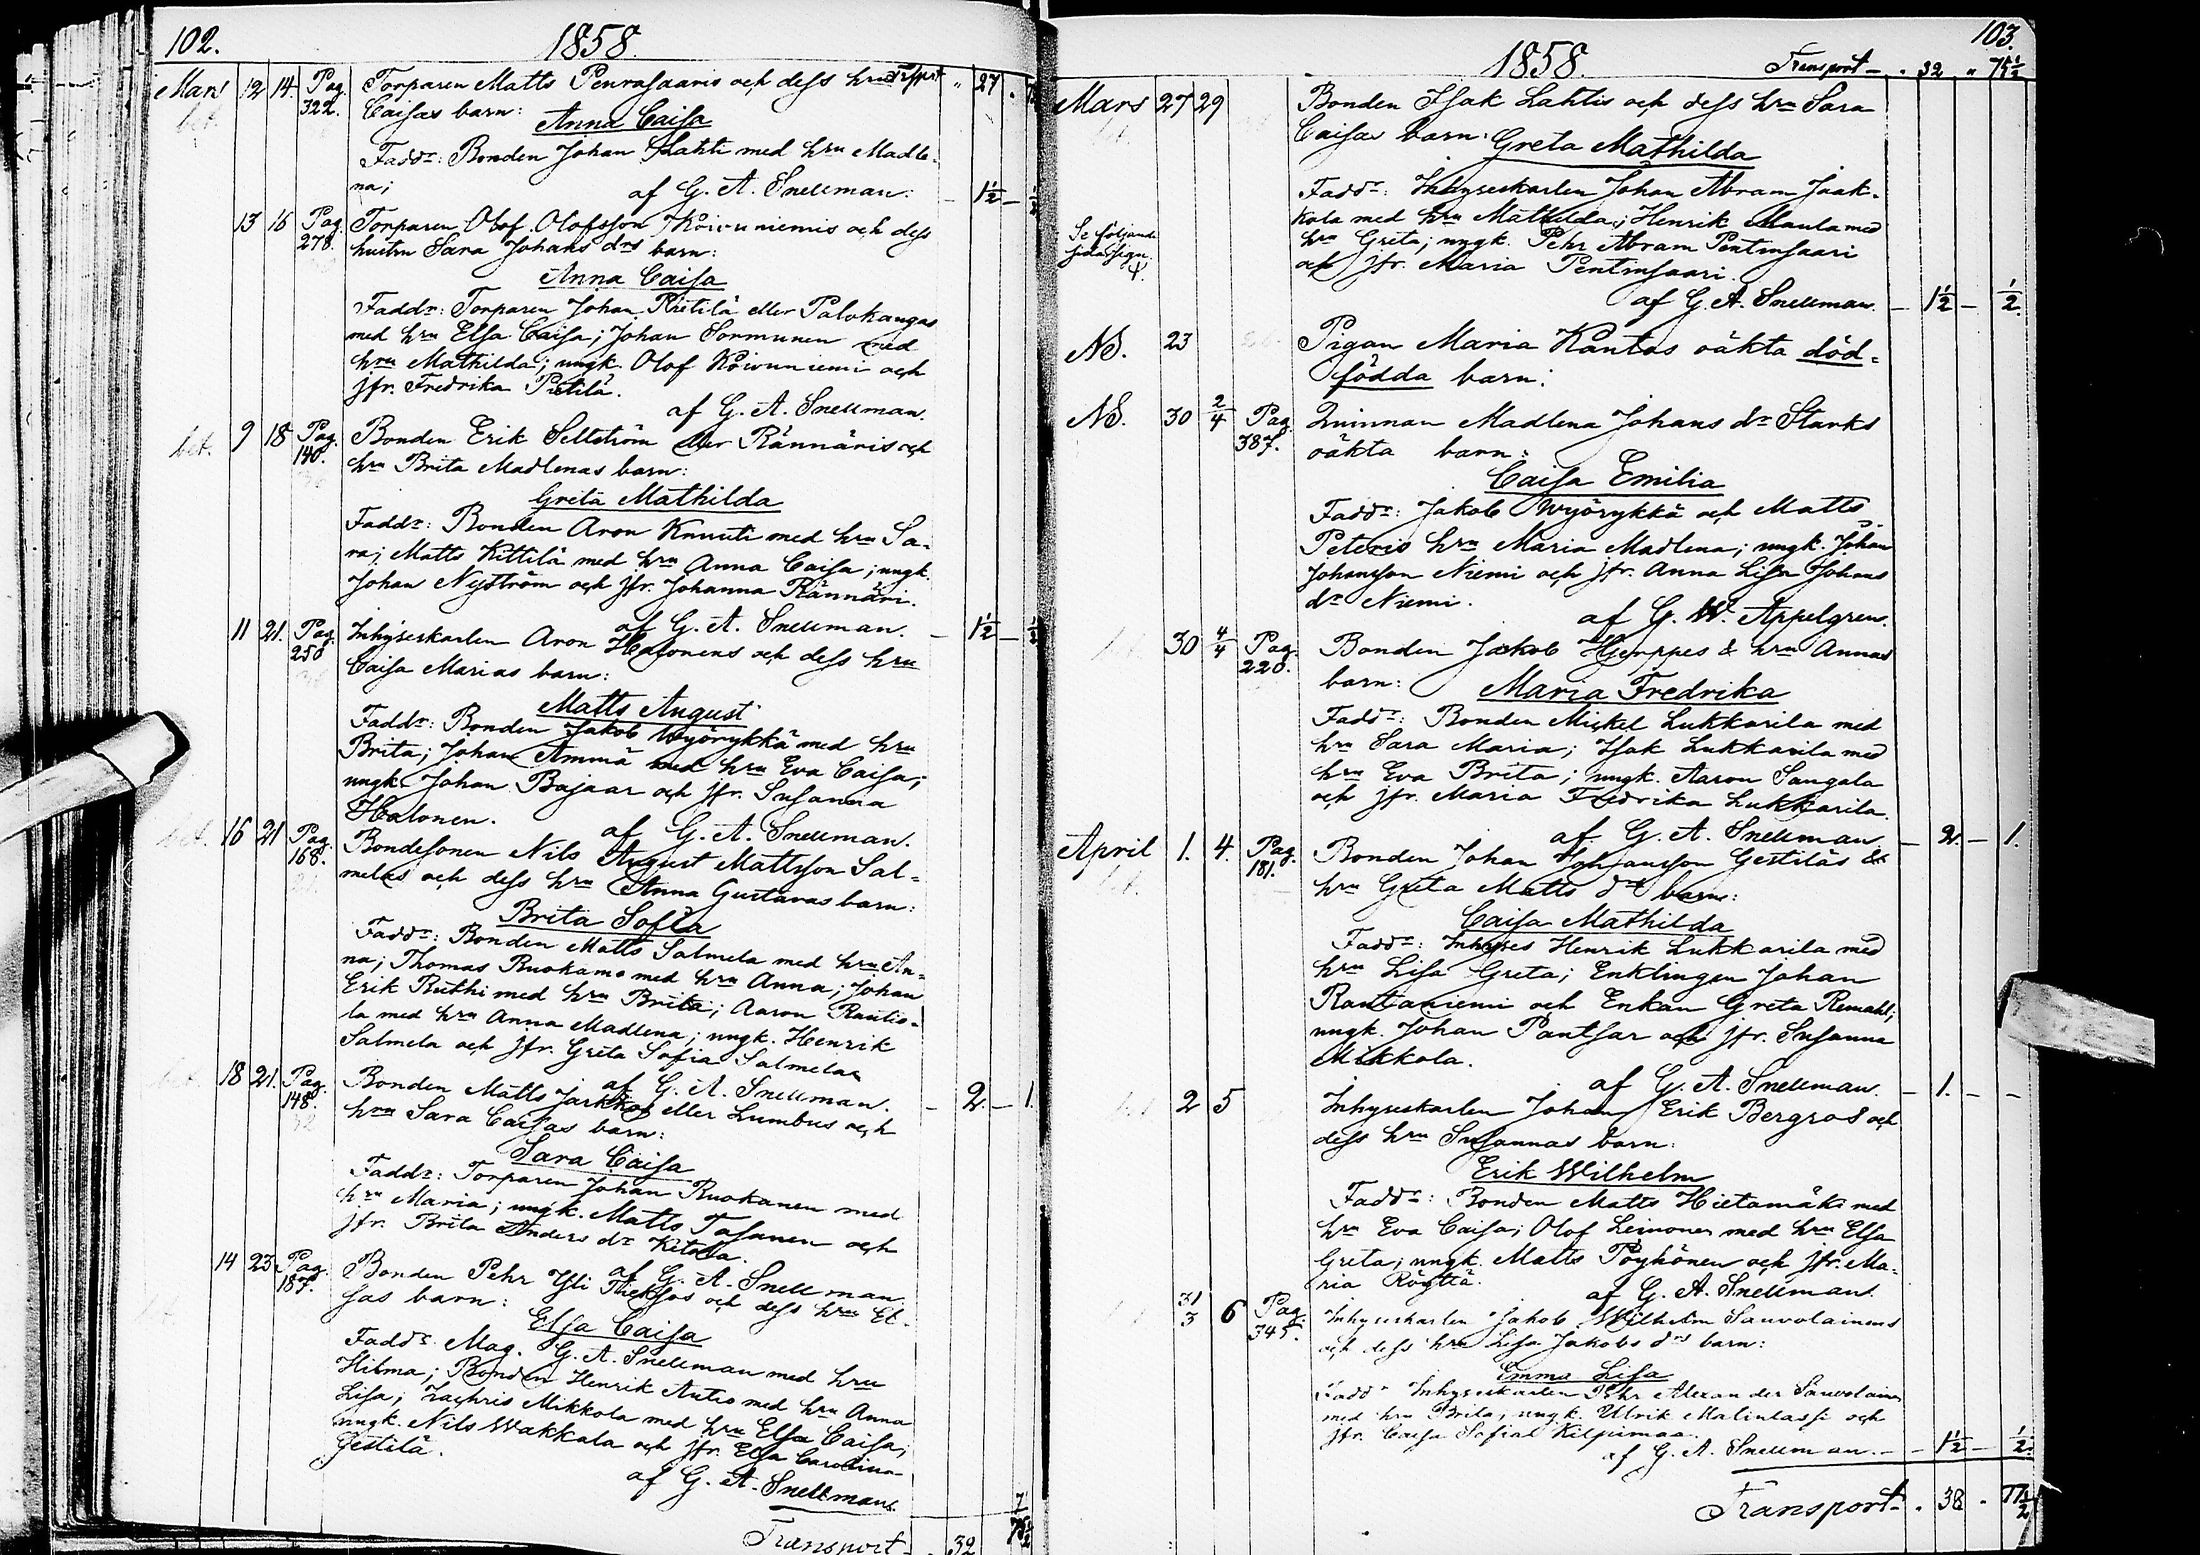 102. 1858.
Transpt " 27 "
Mars 12 14. Pag. 322. Torparen Matts Penrasaaris och dess hru
bet. Caisas barn:
Anna Caisa
Faddr: Bonden Johan Lahti med hru Madle-
na;
af G. A. Snellman. — 1½ — ½
13 16 Pag. 278. Torparen Olof Olofsson Koivuniemis och dess
hustru Sara Johans drs barn:
Anna Caisa
Faddr: Torparen Johan Pietilä eller Palokangas
med hru Elsa Caisa; Johan Sormunen med
hru Mathilda; ungk. Olof Koivuniemi och
jfr. Fredrika Pietilä.
af G. A. Snellman.
bet. 9 18 Pag. 140. Bonden Erik Sellström eller Rännäris och
hru Brita Madlenas barn:
Greta Mathilda
Faddr: Bonden Aron Knuuti med hru Sa-
ra; Matts Kittilä med hru Anna Caisa; ungk.
Johan Nyström och jfr. Johanna Rännäri.
af G. A. Snellman. — 1½ — ½
11 21. Pag. 250 Inhyseskarlen Aron Halonens och dess hru
Caisa Marias barn:
Matts August
Faddr: Bonden Jakob Wyörykkä med hru
Brita; Johan Ammä med hru Eva Caisa;
ungk. Johan Bajaar och jfr. Susanna
Halonen.
af G. A. Snellman.
bet. 16 21 Pag. 168. Bondesonen Nils August Mattsson Sal-
melas och dess hru Anna Gustavas barn:
Brita Sofia
Faddr: Bonden Matts Salmela med hru An-
na; Thomas Ruokamo med hru Anna; Johan
Erik Ruthi med hru Brita; Aaron Rautio-
la med hru Anna Madlena; ungk. Henrik
Salmela och jfr. Greta Sofia Salmela
af G. A. Snellman. — 2. — 1.
bet. 18 21. Pag. 148. Bonden Matts Jarkkos eller Lumbus och
hru Sara Caisas barn:
Sara Caisa
Faddr: Torparen Johan Ruokanen med
hru Maria; ungk. Matts Tasanen och
jfr. Brita Anders dr Kitola.
af G. A. Snellman
14 23 Pag. 187. Bonden Pehr Yli Thicksos och dess hru El-
sas barn:
Elsa Caisa
Faddr: Mag. G. A. Snellman med hru
Hilma; Bonden Henrik Autio med hru Anna
Lisa; Zachris Mikkola med hru Elsa Caisa;
ungk. Nils Wakkala och jfr. Elsa Carolina
Gestilä.
af G. A. Snellman.
Transport — . 32
103.
1858. Transport — . 32 " 75½
Mars 27 29 Bonden Isak Lahtis och dess hru Sara
Caisas barn: Greta Mathilda
Faddr: Inhyseskarlen Johan Abram Jaak-
kola med hru Mathilda; Henrik Maula med
hru Greta; ungk. Pehr Abram Pentinsaari
och jfr. Maria Pentinsaari.
Se följande
sida sign.
Ψ.
af G. A. Snellman. — 1½ — ½.
NB. 23 Pigan Maria Kantos oäkta död-
födda barn:
NB. 30 2/4 Pag. 387. Quinnan Madlena Johans dr Starks
oäkta barn:
Caisa Emilia
Faddr: Jakob Wyörykkä och Matts
Peteris hru Maria Madlena; ungk. Johan
Johansson Niemi och jfr. Anna Lisa Johans
dr Niemi.
af G. W. Appelgren.
30 4/4 Pag. 220. Bonden Jakob Hjerppes & hru Annas
barn: Maria Fredrika
Faddr: Bonden Mickel Lukkarila med
hru Sara Maria; Isak Lukkarila med
hru Eva Brita; ungk. Aaron Saugala
och jfr. Maria Fredrika Lukkarila
af G. A. Snellman — 2. — 1.
April 1. 4. Pag. 181. Bonden Johan Johansson Gestiläs &
hru Greta Matts drs barn:
Caisa Mathilda
Faddr: Inhyses Henrik Lukkarila med
hru Lisa Greta; Enklingen Johan
Rautaniemi och Enkan Greta Remahl;
ungk. Johan Pantsar och jfr. Susanna
Mikkola.
af G. A. Snellman. — 1. — —
2 5 Inhyseskarlen Johan Erik Bergros och
dess hru Susannas barn:
Erik Wilhelm
Faddr: Bonden Matts Hietamäki med
hru Eva Caisa; Olof Leinonen med hru Elsa
Greta; ungk. Matts Pöyhönen och jfr. Ma-
ria Röyttä.
af G. A. Snellman.
31/3 6 Pag. 345. Inhyseskarlen Jakob Wilhelm Sauvolainens
och dess hru Lisa Jakobs drs barn:
Emma Lisa
Faddr Inhyseskarlen Pehr Alexander Sauvolainen
med hru Brita; ungk. Ulrik Malinlassi och
jfr. Caisa Sofia Kilpimaa.
af G. A. Snellman. — 1½ — ½.
Transport — . 38 .